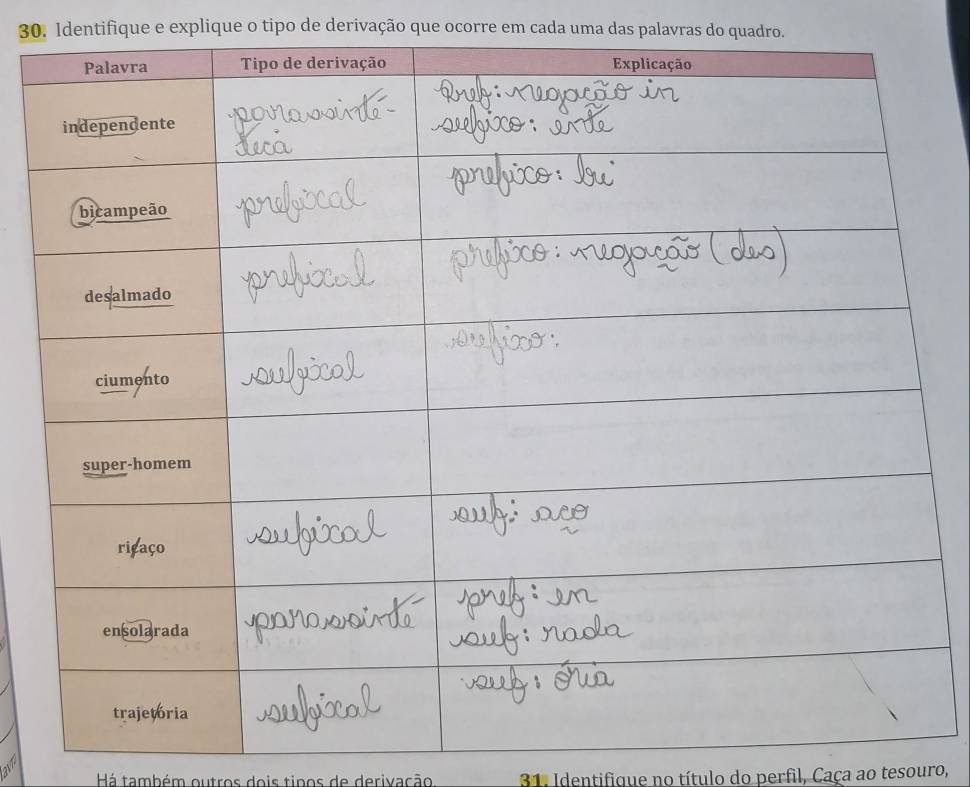 30. Identifique e explique o tipo de derivação que ocorre em cada uma das palavras do quadro.
Palavra Tipo de derivação Explicação
independente parassinté-
tica
Pref: negação in
sufixo: ente
bicampeão prefixal prefixo: bi
desalmado prefixal prefixo: negação (des)
ciumento sufixal sufixo:
super-homem
ricaço sufixal suf: aço
ensolarada parassinté
pref: en
suf: rada
trajetória sufixal suf: ória
Há também outros dois tipos de derivação
31. Identifique no título do perfil, Caça ao tesouro,